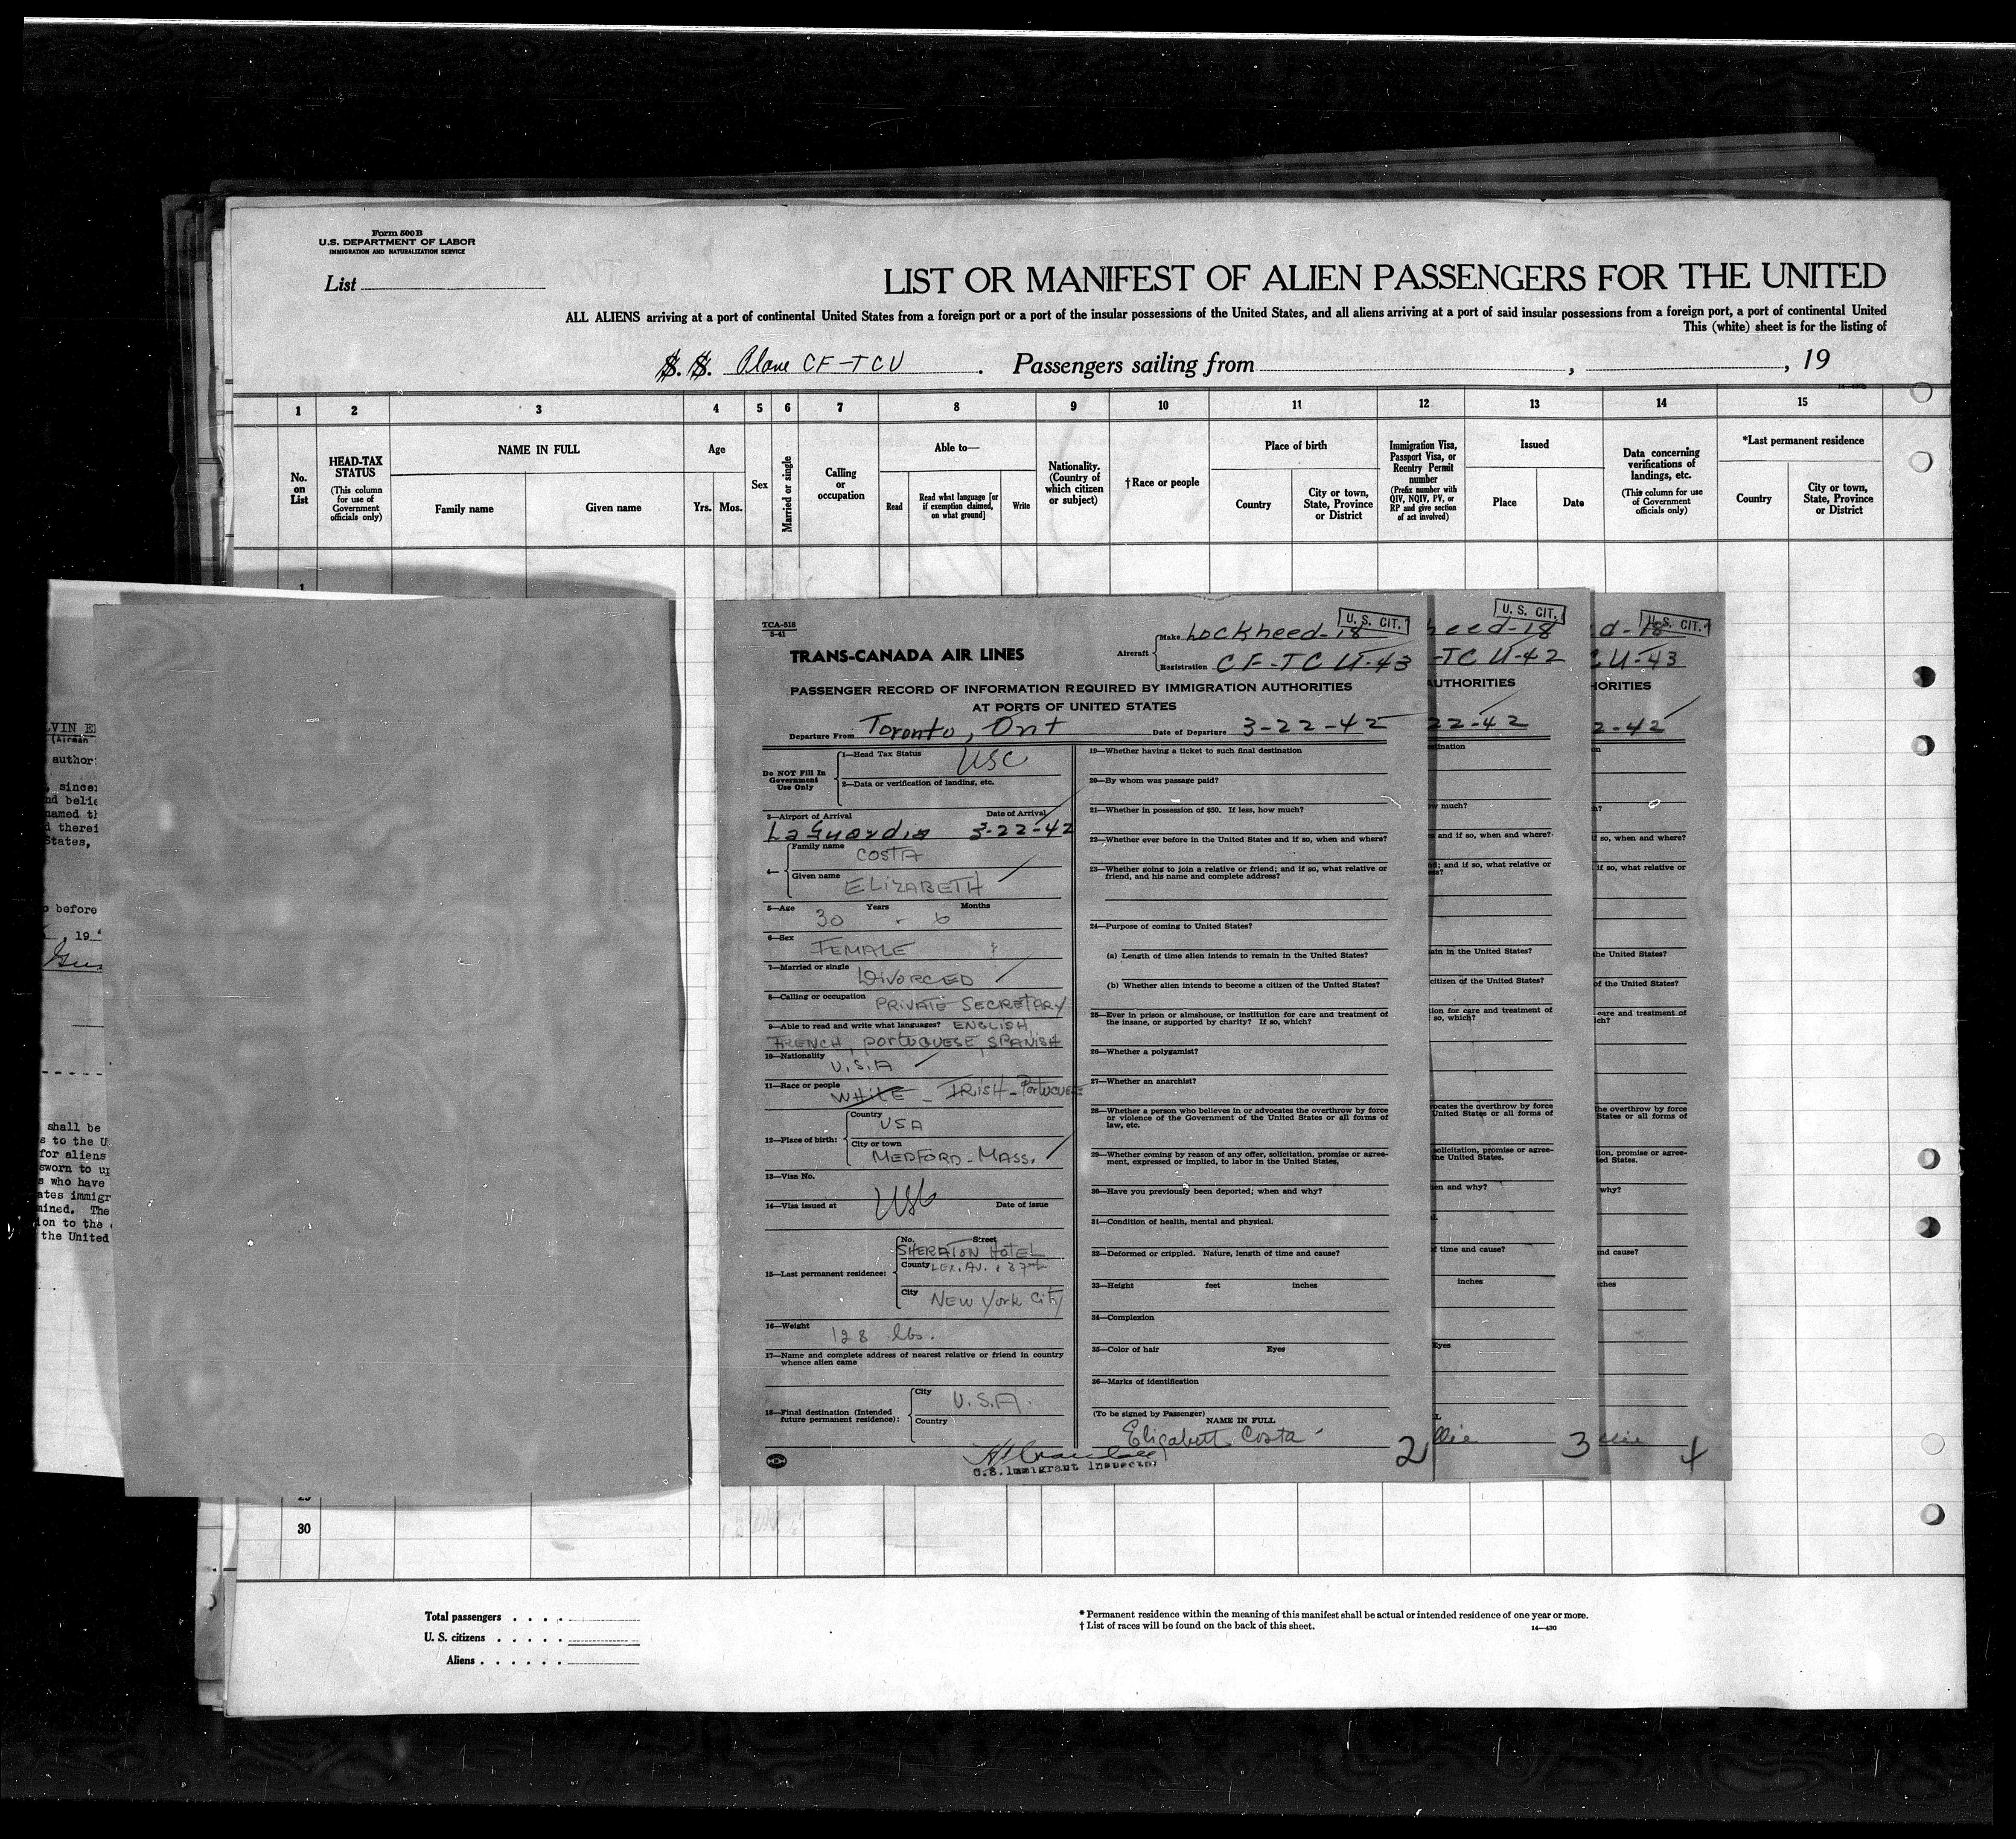 Form 500B
U.S. DEPARTMENT OF LABOR
IMMIGRATION AND NATURALIZATION SERVICE
List
LIST OR MANIFEST OF ALIEN PASSENGERS FOR THE UNITED
ALL ALIENS arriving at a port of continental United States from a foreign port or a port of the insular possessions of the United States, and all aliens arriving at a port of said insular possessions from a foreign port, a port of continental United
This (white) sheet is for the listing of
S. S. Plane CF-TCU . Passengers sailing from , , 19
1 2 3 4 5 6 7 8 9 10 11 12 13 14 15
No. on List
HEAD-TAX STATUS
(This column for use of Government officials only)
NAME IN FULL
Family name Given name
Age
Yrs. Mos.
Sex
Married or single
Calling or occupation
Able to—
Read
Read what language [or if exemption claimed, on what ground]
Write
Nationality. (Country of which citizen or subject)
†Race or people
Place of birth
Country
City or town, State, Province or District
Immigration Visa, Passport Visa, or Reentry Permit number
(Prefix number with QIV, NQIV, PV, or RP and give section of act involved)
Issued
Place Date
Data concerning verifications of landings, etc.
(This column for use of Government officials only)
*Last permanent residence
Country
City or town, State, Province or District
1
LVIN E
(Airman
author
, since
nd belie
named th
d therei
States,
o before
, 19
shall be
s to the U
for aliens
sworn to up
s who have
ates immigr
mined. The
ion to the
the United
TCA-518
5-41
U. S. CIT.
TRANS-CANADA AIR LINES
Aircraft
Make Lockheed-18
Registration CF-TCU-43
PASSENGER RECORD OF INFORMATION REQUIRED BY IMMIGRATION AUTHORITIES
AT PORTS OF UNITED STATES
Departure From Toronto, Ont Date of Departure 3-22-42
Do NOT Fill In Government Use Only
1—Head Tax Status USC
2—Data or verification of landing, etc.
3—Airport of Arrival Date of Arrival
LaGuardia 3-22-42
4—
Family name COSTA
Given name ELIZABETH
5—Age 30 Years - 6 Months
6—Sex FEMALE
7—Married or single DIVORCED
8—Calling or occupation PRIVATE SECRETARY
9—Able to read and write what languages? ENGLISH,
FRENCH, PORTUGUESE, SPANISH
10—Nationality U.S.A
11—Race or people WHITE - IRISH-PORTUGUESE
12—Place of birth:
Country USA
City or town MEDFORD-MASS.
13—Visa No.
14—Visa issued at USC Date of issue
15—Last permanent residence:
No. Street SHERATON HOTEL
County LEX. AV. & 37th
City NEW YORK CITY
16—Weight 128 lbs.
17—Name and complete address of nearest relative or friend in country whence alien came
18—Final destination (Intended future permanent residence):
City U.S.A.
Country
19—Whether having a ticket to such final destination
20—By whom was passage paid?
21—Whether in possession of $50. If less, how much?
22—Whether ever before in the United States and if so, when and where?
23—Whether going to join a relative or friend; and if so, what relative or friend, and his name and complete address?
24—Purpose of coming to United States?
(a) Length of time alien intends to remain in the United States?
(b) Whether alien intends to become a citizen of the United States?
25—Ever in prison or almshouse, or institution for care and treatment of the insane, or supported by charity? If so, which?
26—Whether a polygamist?
27—Whether an anarchist?
28—Whether a person who believes in or advocates the overthrow by force or violence of the Government of the United States or all forms of law, etc.
29—Whether coming by reason of any offer, solicitation, promise or agreement, expressed or implied, to labor in the United States.
30—Have you previously been deported; when and why?
31—Condition of health, mental and physical.
32—Deformed or crippled. Nature, length of time and cause?
33—Height feet inches
34—Complexion
35—Color of hair Eyes
36—Marks of identification
(To be signed by Passenger)
NAME IN FULL
Elizabeth Costa
U.S. Immigrant Inspector
2
U. S. CIT.
heed-18
-TCU-42
UTHORITIES
22-42
stination
w much?
and if so, when and where?
d; and if so, what relative or
ss?
ain in the United States?
citizen of the United States?
tion for care and treatment of
so, which?
vocates the overthrow by force
United States or all forms of
solicitation, promise or agree-
the United States.
en and why?
f time and cause?
inches
Eyes
3
U. S. CIT.
d-18
CU-43
HORITIES
2-42
so, when and where?
if so, what relative or
the United States?
of the United States?
care and treatment of
ich?
the overthrow by force
States or all forms of
ion, promise or agree-
ted States.
why?
nd cause?
ches
4
30
Total passengers
U. S. citizens
Aliens
* Permanent residence within the meaning of this manifest shall be actual or intended residence of one year or more.
† List of races will be found on the back of this sheet.
14—430